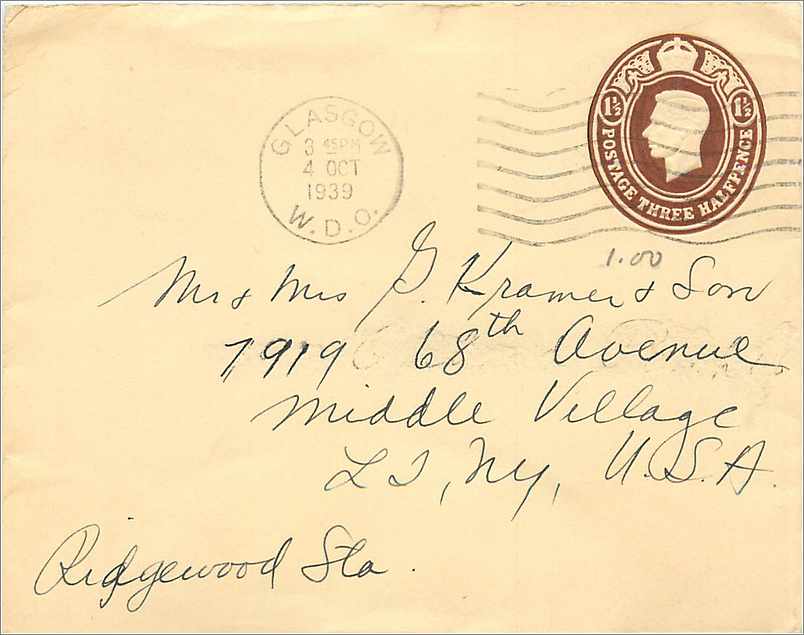 GLASGOW
3 45PM
4 OCT
1939
W.D.O.
1½ 1½
POSTAGE THREE HALFPENCE
1.00
Mr & Mrs G. Kramer & Son
7919 68th Avenue
Middle Village
L I, NY, U.S.A.
Ridgewood Sta.